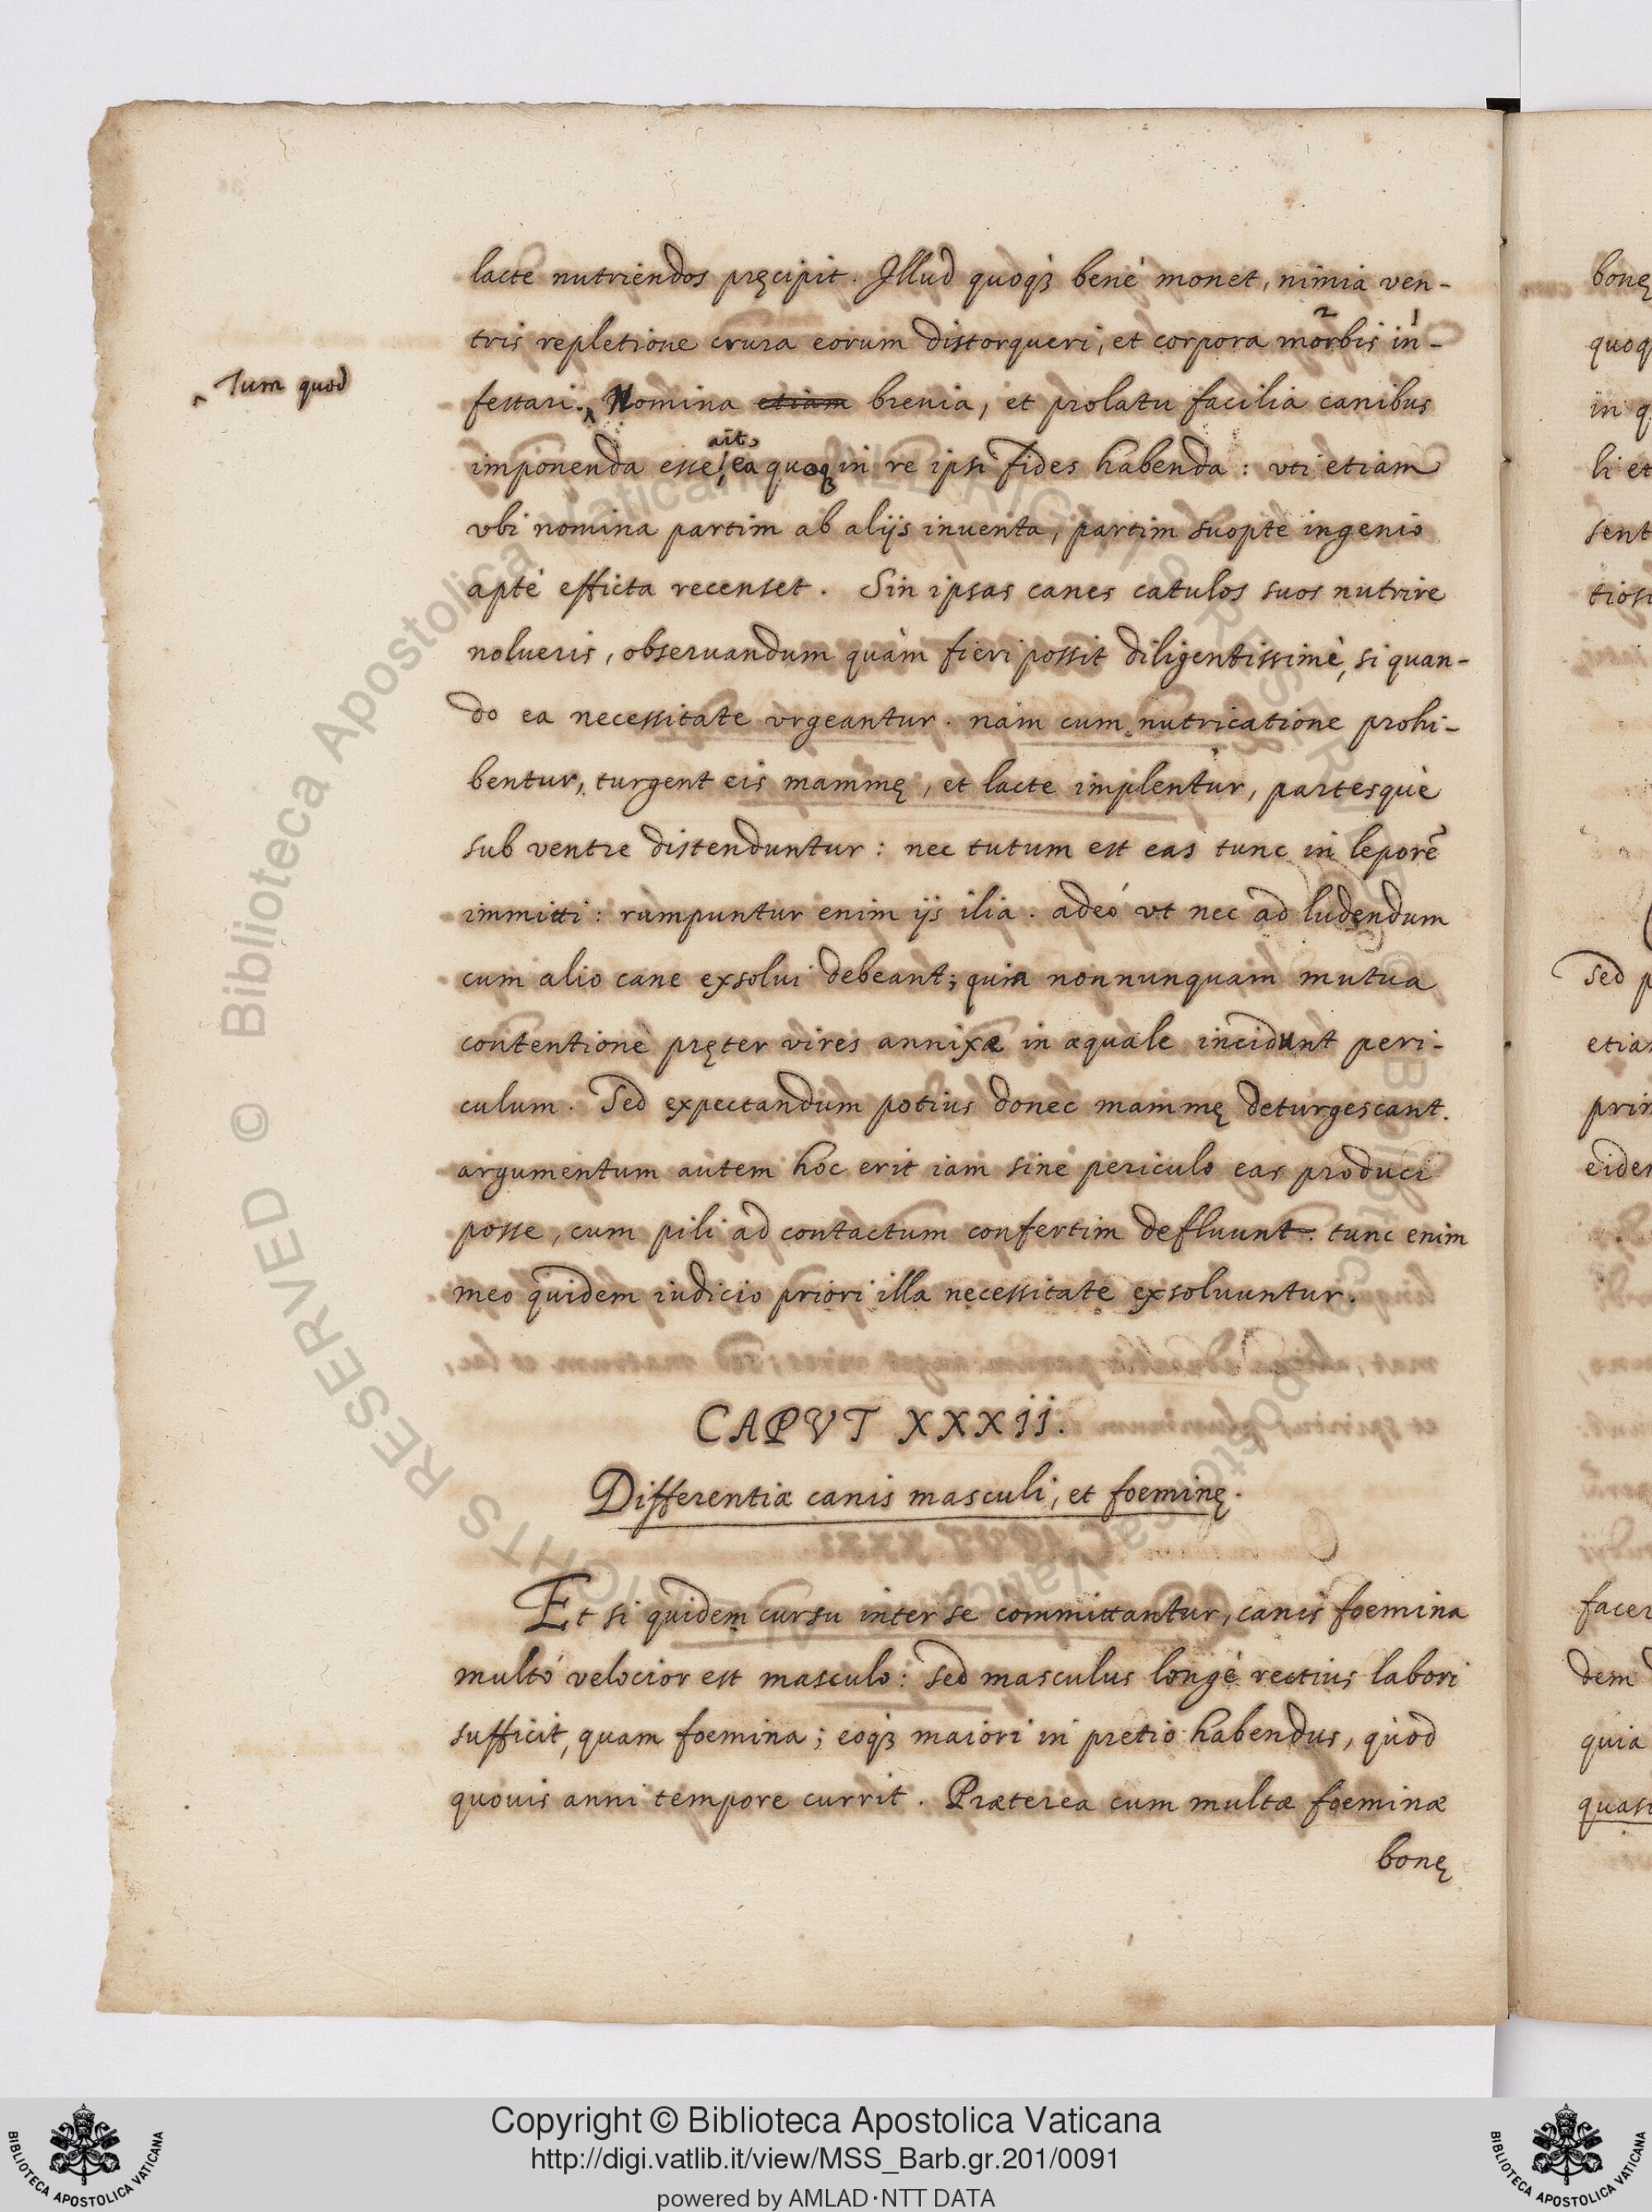 lacte nutriendos pręcipit. Illud quoqȝ benè monet, nimia ven-
tris repletione crura eorum distorqueri, et corpora morbis in-
2 1
^ Tum quod
festari. ^ Nomina etiam breuia, et prolatu facilia canibus
ait,
imponenda esse, ea quoqȝ in re ipsi fides habenda: vti etiam
vbi nomina partim ab alijs inuenta, partim suopte ingenio
aptè efficta recenset. Sin ipsas canes catulos suos nutrire
nolueris, obseruandum quàm fieri possit diligentissimè, si quan-
do ea necessitate vrgeantur. nam cum nutricatione prohi-
bentur, turgent eis mammę, et lacte implentur, partesquè
sub ventre distenduntur: nec tutum est eas tunc in leporē
immitti: rumpuntur enim ijs ilia. adeó vt nec ad ludendum
cum alio cane exsolui debeant; quia nonnunquam mutua
contentione pręter vires annixæ in æquale incidunt peri-
culum. Sed expectandum potius donec mammę deturgescant.
argumentum autem hoc erit iam sine periculo eas produci
posse, cum pili ad contactum confertim defluunt. tunc enim
meo quidem iudicio priori illa necessitate exsoluuntur.
CAPVT XXXII.
Differentiæ canis masculi, et foeminę.
Et si quidem cursu inter se committantur, canis foemina
multó velocior est masculo: sed masculus longè rectius labori
sufficit, quam foemina; eoqȝ maiori in pretio habendus, quod
quouis anni tempore currit. Præterea cum multæ foeminæ
bonę
bonę
quoq
in q
li et
sent
tiosi
Sed p
etia
prin
eiden
facer
dem
quia
quasi
© Biblioteca Apostolica Vaticana ALL RIGHTS RESERVED
Copyright © Biblioteca Apostolica Vaticana
http://digi.vatlib.it/view/MSS_Barb.gr.201/0091
powered by AMLAD·NTT DATA
BIBLIOTECA APOSTOLICA VATICANA
BIBLIOTECA APOSTOLICA VATICANA